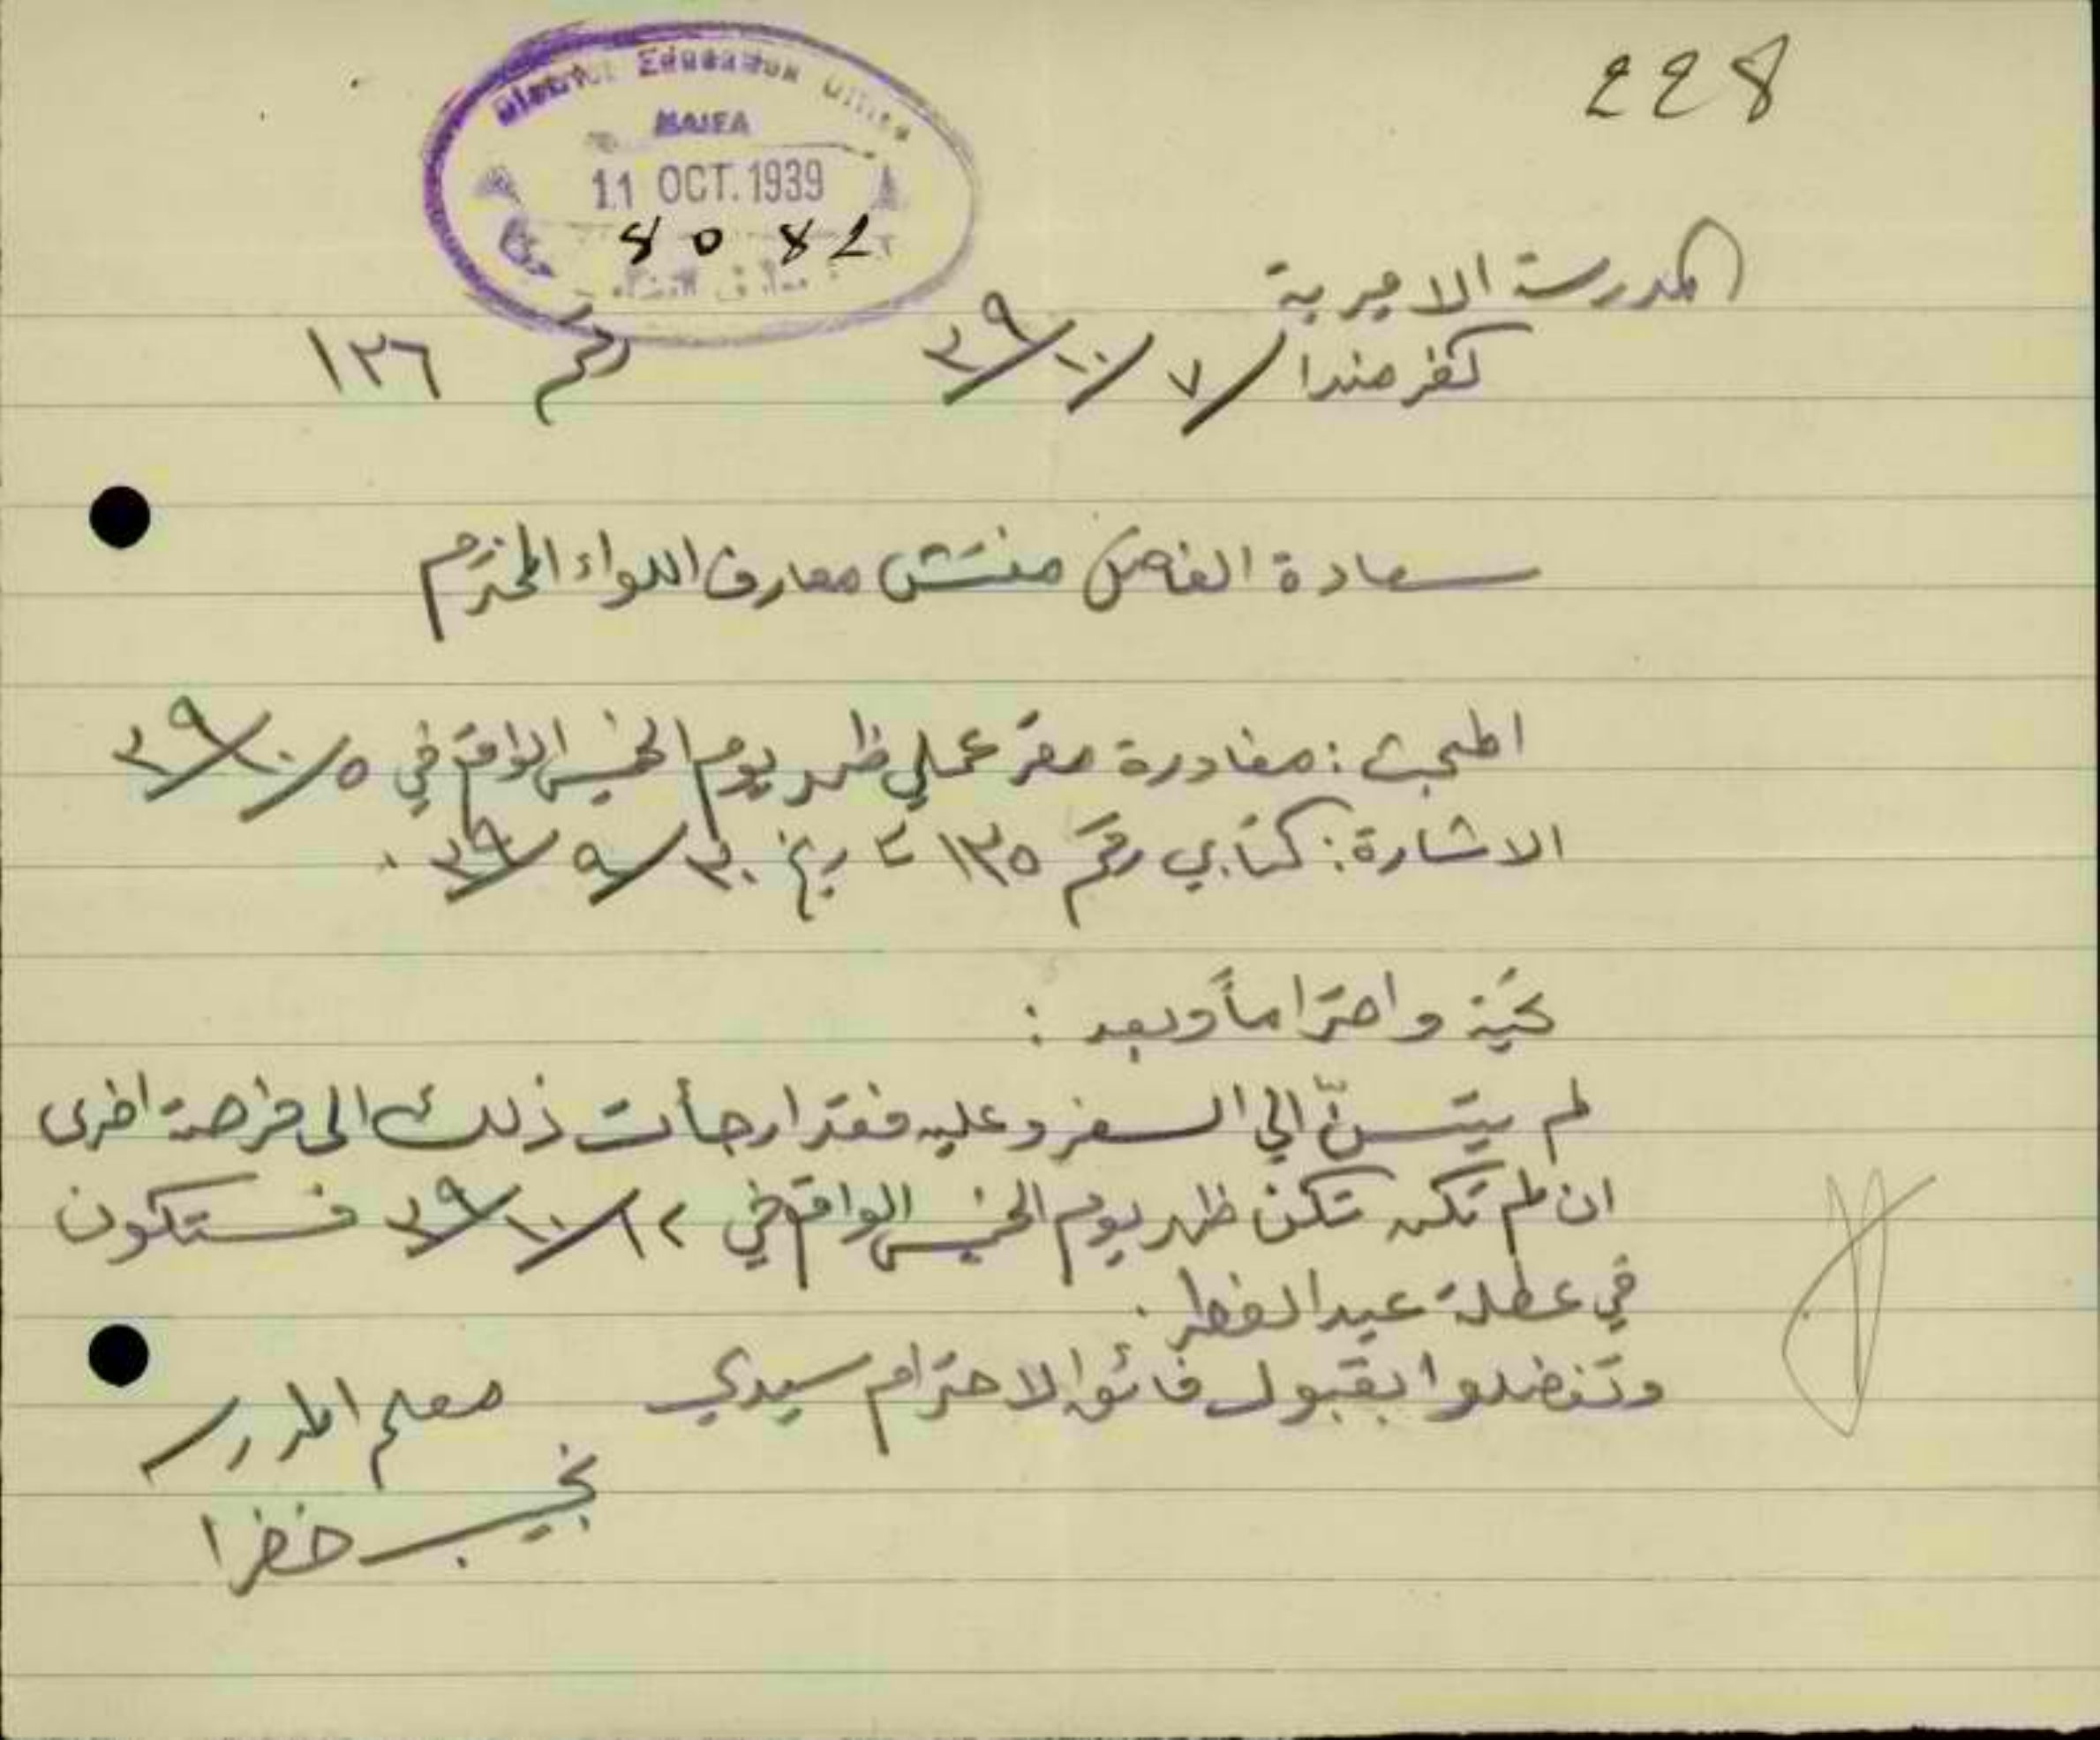 228
District Education Office
HAIFA
11 OCT. 1939
8087
المدرسة الاميرية
كفر مندا ٧/١٠/٣٩ رقم ١٣٦
سعادة الفاضل مفتش معارف اللواء المحترم
المبحث : مغادرة مقر عملي ظهر يوم الخميس الواقع في ٥/١٠/٣٩
الاشارة : كتابي رقم ١٣٥ تاريخ ٣٠/٩/٣٩ .
تحية واحتراماً وبعد :
لم يتسنّ الي السفر وعليه فقد ارجأت ذلك الى فرصة اخرى
ان لم تكن تكن ظهر يوم الخميس الواقع في ١٢/١٠/٣٩ فستكون
في عطلة عيد الفطر .
وتفضلوا بقبول فائق الاحترام سيدي معلم المدرسة
نجيب خضرا